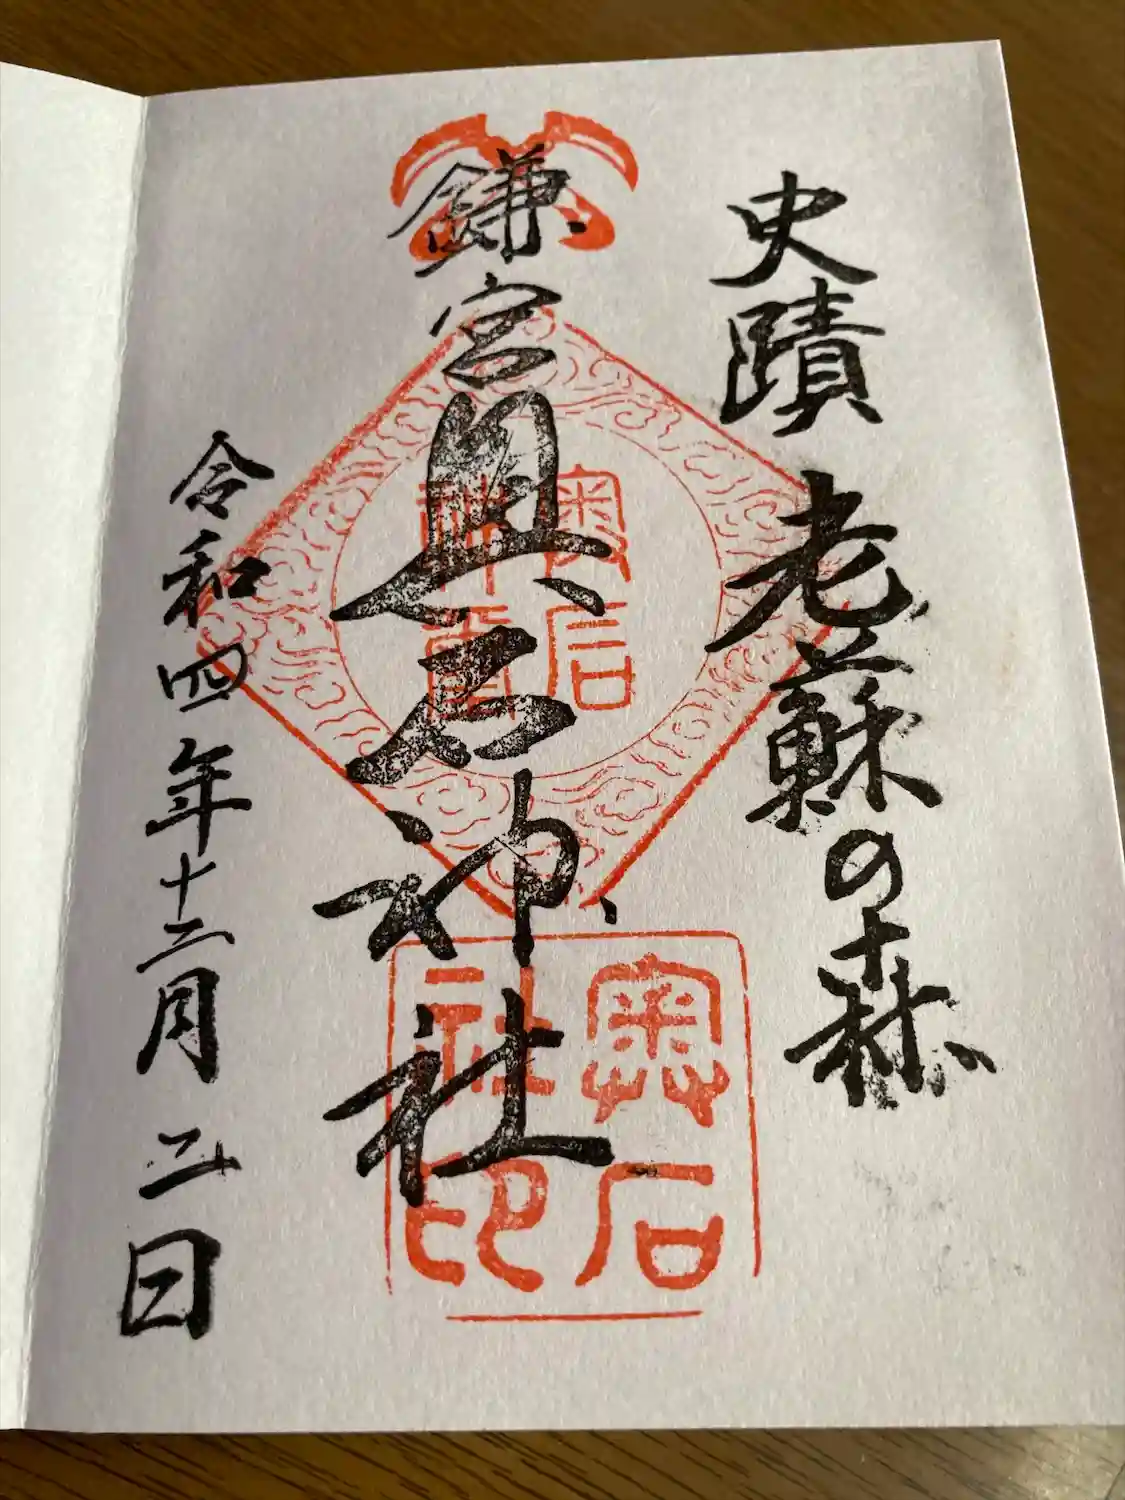 史蹟 老蘇の森
鎌宮奥石神社
奥石
神社
奥石
社印
令和四年十二月二日